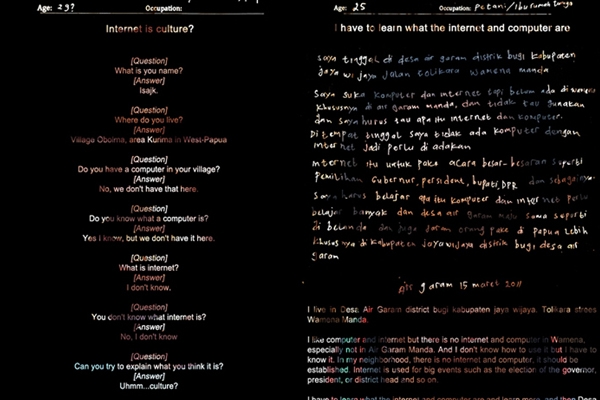 Age: 29?
Occupation:
Internet is culture?
[Question]
What is you name?
[Answer]
Isajk.
[Question]
Where do you live?
[Answer]
Village Oboirna, area Kurima in West-Papua
[Question]
Do you have a computer in your village?
[Answer]
No, we don't have that here.
[Question]
Do you know what a computer is?
[Answer]
Yes I know, but we don't have it here.
[Question]
What is internet?
[Answer]
I don't know.
[Question]
You don't know what internet is?
[Answer]
No, I don't know
[Question]
Can you try to explain what you think it is?
[Answer]
Uhmm...culture?
Age: 25
Occupation: Petani/Ibu rumah tangga
I have to learn what the internet and computer are
saya tinggal di desa air garam distrik bugi kabupaten
jaya wijaya jalan tolikara wamena manda
Saya suka komputer dan internet tapi belum ada di wamena
khususnya di air garam manda, dan tidak tau gunakan
dan saya harus tau apa itu internet dan komputer.
Di tempat tinggal saya tidak ada komputer dengan
internet jadi perlu di adakan
internet itu untuk pake acara besar-besaran seperti
pemilihan Gubernur, persident, bupati, DPR dan sebagainya.
Saya harus belajar apa itu komputer dan internet perlu
belajar banyak dan desa air garam maju sama seperti
di belanda dan juga jaran orang pake di papua lebih
khususnya di kabupaten jayawijaya distrik bugi desa air
garam
Air garam 15 maret 2011
I live in Desa Air Garam district bugi kabupaten jaya wijaya. Tolikara street
Wamena Manda.
I like computer and internet but there is no internet and computer in Wamena,
especially not in Air Garam Manda. And I don't know how to use it but I have to
know it. In my neighborhood, there is no internet and computer, it should be
established. Internet is used for big events such as the election of the governor,
president, or district head and so on.
I have to learn what the internet and computer are and learn more, and then Desa